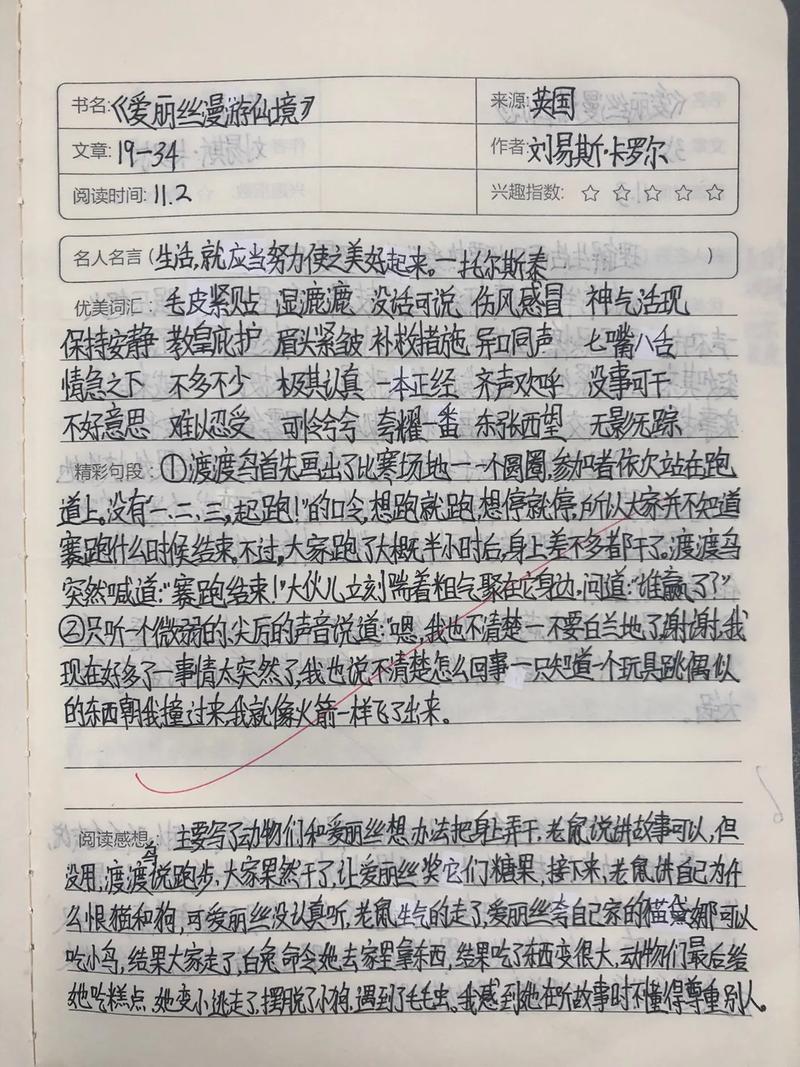 书名:《爱丽丝漫游仙境》 来源:英国
文章:19-34 作者:刘易斯·卡罗尔
阅读时间:11.2 兴趣指数:☆ ☆ ☆ ☆ ☆
名人名言(生活,就应当努力使之美好起来。一托尔斯泰)
优美词汇: 毛皮紧贴 湿漉漉 没话可说 伤风感冒 神气活现
保持安静 教皇庇护 眉头紧皱 补救措施 异口同声 七嘴八舌
情急之下 不多不少 极其认真 一本正经 齐声欢呼 没事可干
不好意思 难以忍受 可怜兮兮 夸耀一番 东张西望 无影无踪
精彩句段:①渡渡鸟首先画出了比赛场地一一个圆圈,参加者依次站在跑
道上。没有“一、二、三,起跑!”的口令,想跑就跑,想停就停,所以大家并不知道
赛跑什么时候结束。不过,大家跑了大概半小时后,身上差不多都干了。渡渡鸟
突然喊道:“赛跑结束!”大伙儿立刻喘着粗气聚在它身边。问道:“谁赢了?”
②只听一个微弱的、尖厉的声音说道:“嗯,我也不清楚一不要白兰地了,谢谢,我
现在好多了一事情太突然了,我也说不清楚怎么回事一只知道一个玩具跳偶似
的东西朝我撞过来,我就像火箭一样飞了出来。
阅读感想: 主要写了动物们和爱丽丝想办法把身上弄干,老鼠说讲故事可以,但
没用,渡渡鸟说跑步,大家果然干了,让爱丽丝奖它们糖果,接下来,老鼠讲自己为什
么恨猫和狗,可爱丽丝没认真听,老鼠生气的走了,爱丽丝夸自己家的猫黛娜可以
吃小鸟,结果大家走了,白兔命令她去家里拿东西,结果吃了东西变很大,动物们最后给
她吃糕点,她变小逃走了,摆脱了小狗,遇到了毛毛虫。我感到她在听故事时不懂得尊重别人。